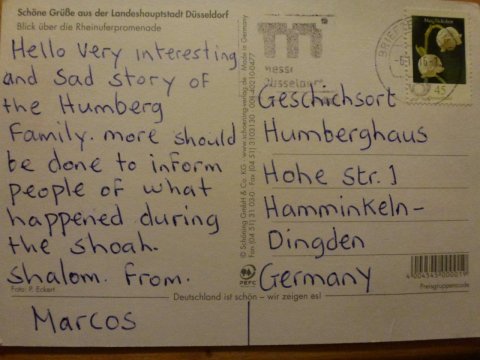 Schöne Grüße aus der Landeshauptstadt Düsseldorf
Blick über die Rheinuferpromenade
Hello Very interesting
and sad story of
the Humberg
Family. more should
be done to inform
people of what
happened during
the shoah.
shalom. From.
Marcos
Foto: P. Eckert
Deutschland ist schön – wir zeigen es!
© Schöning GmbH & Co. KG · www.schoening-verlag.de · Made in Germany
PEFC
messe
Düsseldorf
BRIEF
45
Geschichsort
Humberghaus
Hohe str. 1
Hamminkeln-
Dingden
Germany
Preisgruppencode